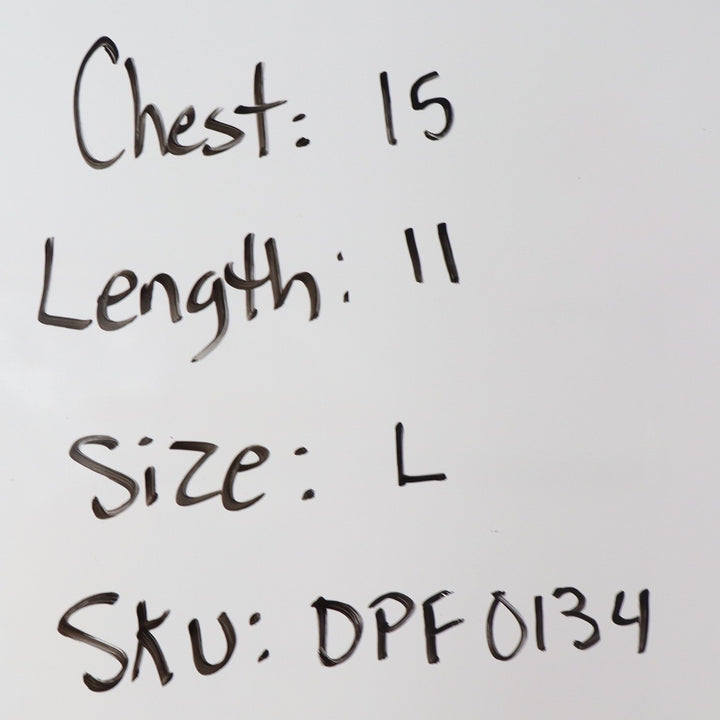 Chest: 15
Length: 11
Size: L
Sku: DPF0134